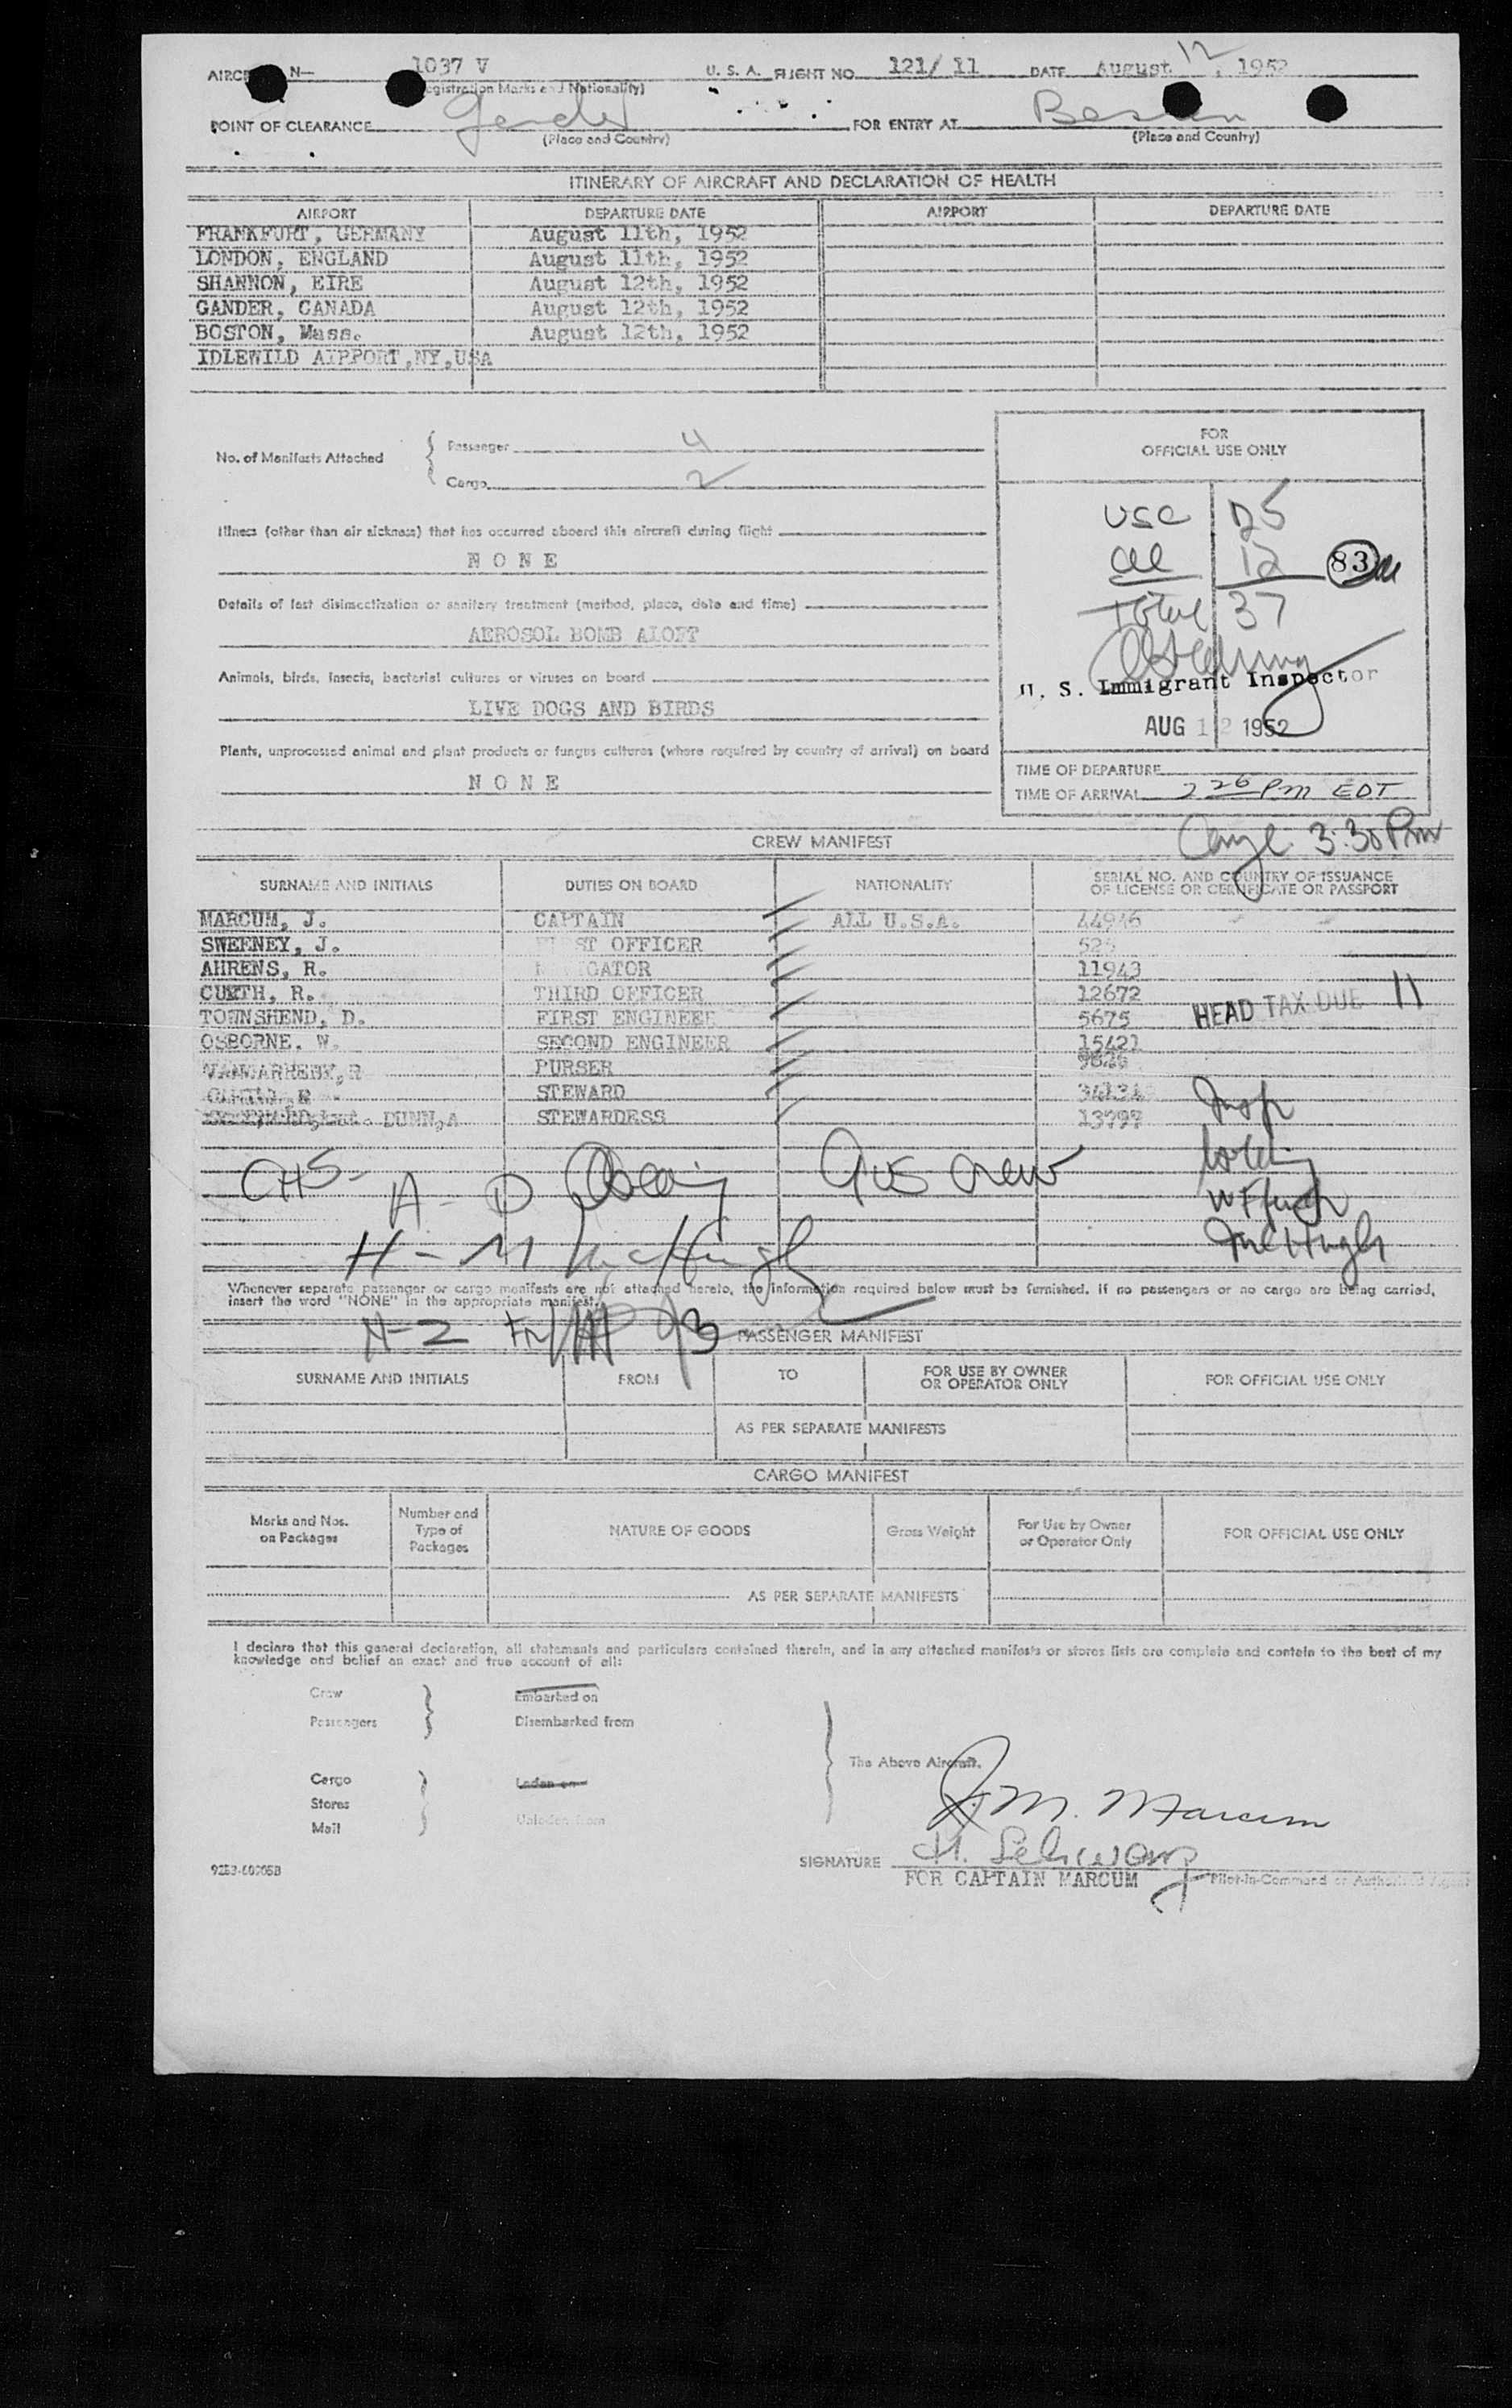 AIRC N— 1037 V U. S. A. FLIGHT NO. 121/ 11 DATE August 12, 1952
egistration Marks and Nationality)
POINT OF CLEARANCE Gander FOR ENTRY AT Boston
(Place and Country) (Place and Country)
ITINERARY OF AIRCRAFT AND DECLARATION OF HEALTH
AIRPORT DEPARTURE DATE AIRPORT DEPARTURE DATE
FRANKFURT, GERMANY August 11th, 1952
LONDON, ENGLAND August 11th, 1952
SHANNON, EIRE August 12th, 1952
GANDER, CANADA August 12th, 1952
BOSTON, Mass. August 12th, 1952
IDLEWILD AIRPORT,NY,USA
No. of Manifests Attached
Passenger 4
Cargo 2
FOR
OFFICIAL USE ONLY
USC 25
al 12 83
Total 37
U. S. Immigrant Inspector
AUG 12 1952
TIME OF DEPARTURE
TIME OF ARRIVAL 2 26 Pm EDT
3:30 Pm
Illness (other than air sickness) that has occurred aboard this aircraft during flight
N O N E
Details of last disinsectization or sanitary treatment (method, place, date and time)
AEROSOL BOMB ALOFT
Animals, birds, insects, bacterial cultures or viruses on board
LIVE DOGS AND BIRDS
Plants, unprocessed animal and plant products or fungus cultures (where required by country of arrival) on board
N O N E
CREW MANIFEST
SURNAME AND INITIALS DUTIES ON BOARD NATIONALITY SERIAL NO. AND COUNTRY OF ISSUANCE
OF LICENSE OR CERTIFICATE OR PASSPORT
MARCUM, J. CAPTAIN ALL U.S.A.
SWEENEY, J. ST OFFICER
AHRENS, R. GATOR 11943
R. THIRD OFFICER 12672
TOWNSHEND, D. FIRST ENGINEER 5675
OSBORNE. W. SECOND ENGINEER 15421
PURSER
STEWARD
DUNN,A STEWARDESS 13797
HEAD TAX DUE 11
Insp
CHS- A- D 9 US Crew
H - M McHugh
McHugh
Whenever separate passenger or cargo manifests are not attached hereto, the information required below must be furnished. If no passengers or no cargo are being carried,
insert the word "NONE" in the appropriate manifest.
N-Z
PASSENGER MANIFEST
SURNAME AND INITIALS FROM TO FOR USE BY OWNER
OR OPERATOR ONLY FOR OFFICIAL USE ONLY
AS PER SEPARATE MANIFESTS
CARGO MANIFEST
Marks and Nos.
on Packages Number and
Type of
Packages NATURE OF GOODS Gross Weight For Use by Owner
or Operator Only FOR OFFICIAL USE ONLY
AS PER SEPARATE MANIFESTS
I declare that this general declaration, all statements and particulars contained therein, and in any attached manifests or stores lists are complete and contain to the best of my
knowledge and belief an exact and true account of all:
Crew Embarked on
Passengers Disembarked from
The Above Aircraft.
Cargo Laden on
Stores
Mail Unladen from
J. M. Marcum
SIGNATURE H. Schwarz
FOR CAPTAIN MARCUM Pilot-in-Command or Authorized Agent